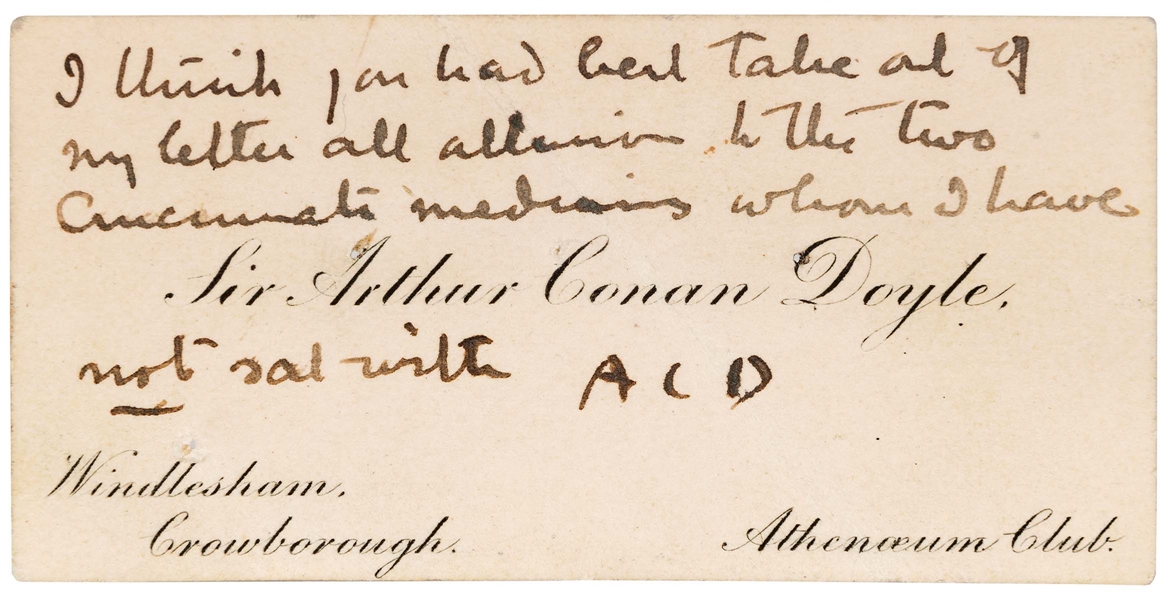 I think you had best take out of
my letter all allusion to the two
Cincinnati mediums whom I have
Sir Arthur Conan Doyle.
not sat with A C D
Windlesham.
Crowborough.
Athenæum Club.